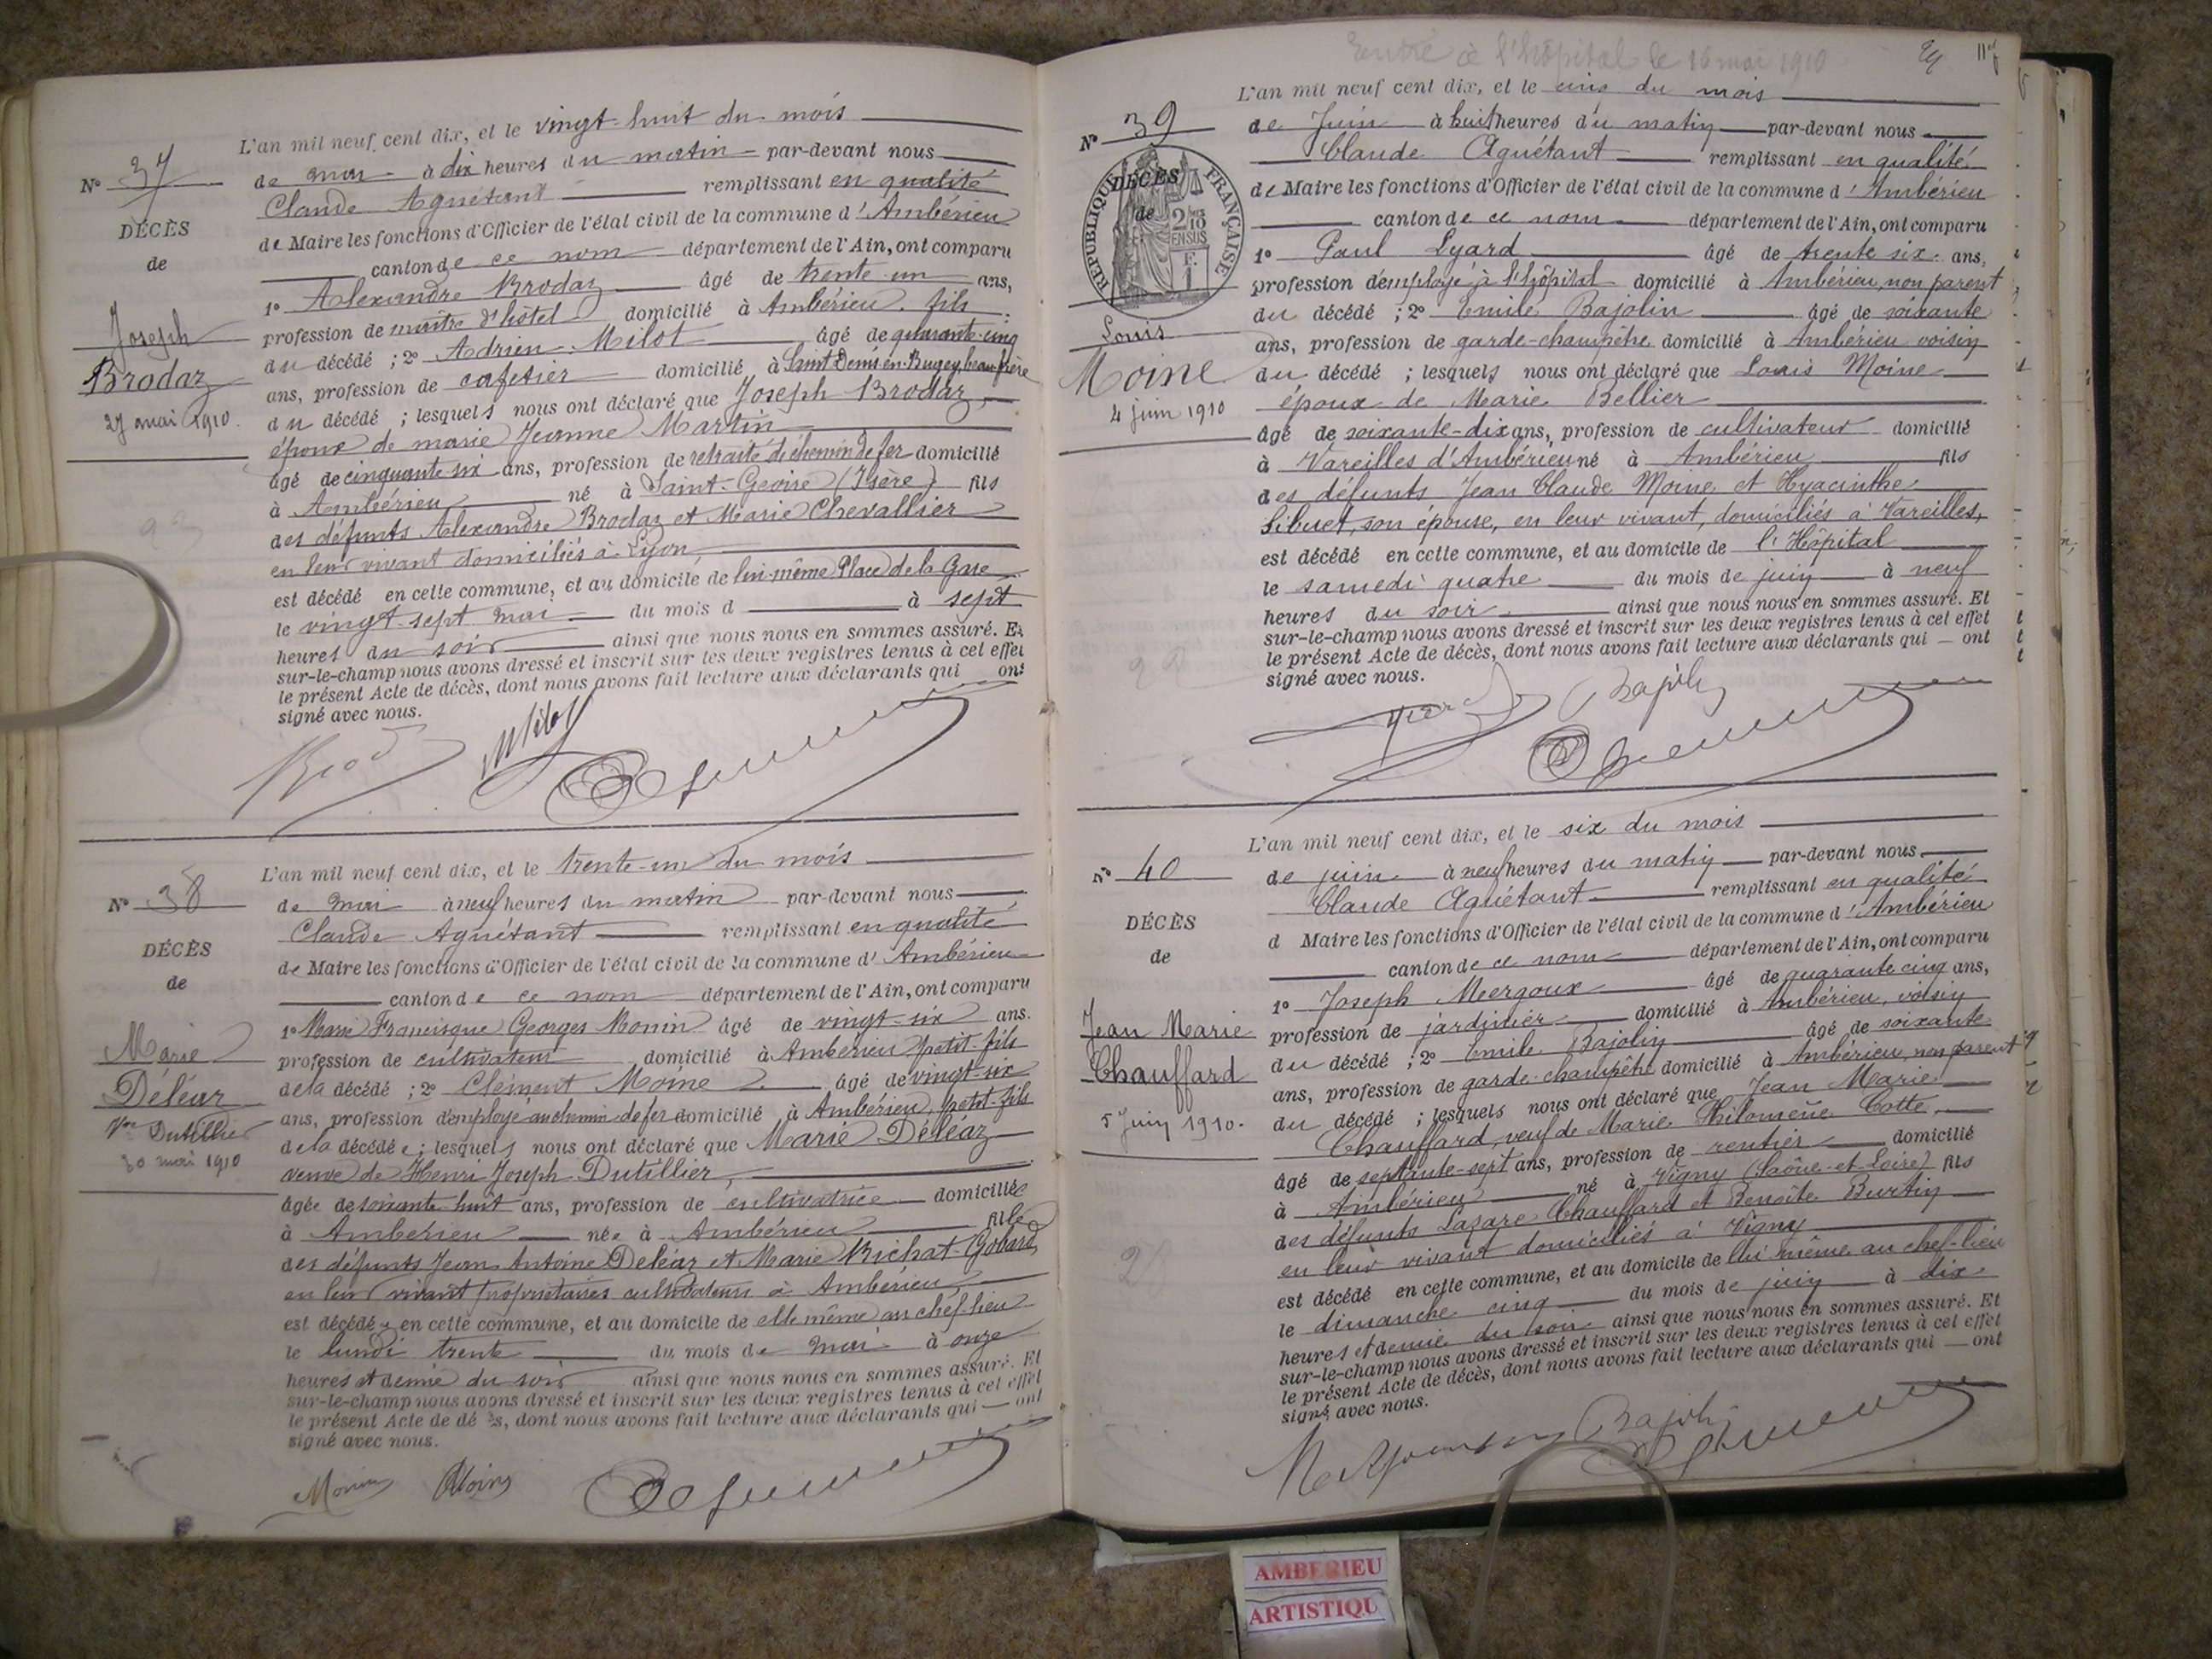 L'an mil neuf cent dix, et le vingt-huit du mois
N° 37
de mai à dix heures du matin par-devant nous
Claude Aguétant remplissant en qualité
DÉCÈS
de Maire les fonctions d'Officier de l'état civil de la commune d'Ambérieu
de
canton de ce nom département de l'Ain, ont comparu
1° Alexandre Brodaz âgé de trente-un ans,
Joseph
profession de maître d'hôtel domicilié à Ambérieu, fils
du décédé ; 2° Adrien Milot âgé de quarante-cinq
Brodaz
ans, profession de cafetier domicilié à Saint Denis-en-Bugey, beau frère
27 mai 1910.
du décédé ; lesquels nous ont déclaré que Joseph Brodaz,
époux de marie Jeanne Martin
âgé de cinquante six ans, profession de retraité de chemin de fer domicilié
à Ambérieu né à Saint-Geoire (Isère) fils
des défunts Alexandre Brodaz et Marie Chevallier
en leur vivant domiciliés à Lyon,
est décédé en cette commune, et au domicile de lui-même Place de la Gare
le vingt-sept mai du mois d à sept
heures du soir ainsi que nous nous en sommes assuré. Et
sur-le-champ nous avons dressé et inscrit sur les deux registres tenus à cet effet
le présent Acte de décès, dont nous avons fait lecture aux déclarants qui ont
signé avec nous.
Brod Milot
L'an mil neuf cent dix, et le trente-un du mois
N° 38
de mai à neuf heures du matin par-devant nous
Claude Aguétant remplissant en qualité
DÉCÈS
de Maire les fonctions d'Officier de l'état civil de la commune d'Ambérieu
de
canton de ce nom département de l'Ain, ont comparu
1° Marie Francisque Georges Monin âgé de vingt-six ans.
Marie
profession de cultivateur domicilié à Ambérieu, petit-fils
Déléaz
de la décédé ; 2° Clément Moine âgé de vingt-six
ans, profession d'employé au chemin de fer domicilié à Ambérieu, petit-fils
Vve Dutillier
de la décédée ; lesquels nous ont déclaré que Marie Déléaz
30 mai 1910
veuve de Henri Joseph Dutillier,
âgée de soixante-huit ans, profession de cultivatrice domiciliée
à Ambérieu née à Ambérieu fille
des défunts Jean Antoine Deléaz et Marie Bichat-Gobard,
en leur vivant propriétaires cultivateurs à Ambérieu,
est décédée en cette commune, et au domicile de elle même au chef-lieu
le lundi trente du mois de mai à onze
heures et demie du soir ainsi que nous nous en sommes assuré. Et
sur-le-champ nous avons dressé et inscrit sur les deux registres tenus à cet effet
le présent Acte de décès, dont nous avons fait lecture aux déclarants qui ont
signé avec nous.
Monin Moine
Entré à l'hôpital le 16 mai 1910
L'an mil neuf cent dix, et le cinq du mois
N° 39
de Juin à huit heures du matin par-devant nous
Claude Aguétant remplissant en qualité
RÉPUBLIQUE FRANÇAISE
DÉCÈS
de
de Maire les fonctions d'Officier de l'état civil de la commune d'Ambérieu
canton de ce nom département de l'Ain, ont comparu
1° Paul Lyard âgé de trente six ans,
profession d'employé à l'hôpital domicilié à Ambérieu, non parent
du décédé ; 2° Emile Bajolin âgé de soixante
Louis
ans, profession de garde-champêtre domicilié à Ambérieu, voisin
Moine
du décédé ; lesquels nous ont déclaré que Louis Moine
4 juin 1910
époux de Marie Bellier
âgé de soixante-dix ans, profession de cultivateur domicilié
à Vareilles d'Ambérieu né à Ambérieu fils
des défunts Jean Claude Moine et Hyacinthe
Sibuet, son épouse, en leur vivant, domiciliés à Vareilles,
est décédé en cette commune, et au domicile de l'Hôpital
le samedi quatre du mois de juin à neuf
heures du soir ainsi que nous nous en sommes assuré. Et
sur-le-champ nous avons dressé et inscrit sur les deux registres tenus à cet effet
le présent Acte de décès, dont nous avons fait lecture aux déclarants qui ont
signé avec nous.
Bajolin
L'an mil neuf cent dix, et le six du mois
N° 40
de juin à neuf heures du matin par-devant nous
Claude Aguétant remplissant en qualité
DÉCÈS
d Maire les fonctions d'Officier de l'état civil de la commune d'Ambérieu
de
canton de ce nom département de l'Ain, ont comparu
1° Joseph Mergoux âgé de quarante cinq ans,
Jean Marie
profession de jardinier domicilié à Ambérieu, voisin
du décédé ; 2° Emile Bajolin âgé de soixante
Chauffard
ans, profession de garde-champêtre domicilié à Ambérieu, non parent
5 juin 1910.
du décédé ; lesquels nous ont déclaré que Jean Marie
Chauffard, veuf de Marie Philomène Cotte,
âgé de septante-sept ans, profession de rentier domicilié
à Ambérieu né à Vigny (Saône-et-Loire) fils
des défunts Lazare Chauffard et Benoîte Burtin
en leur vivant domiciliés à Vigny
est décédé en cette commune, et au domicile de lui même au chef-lieu
le dimanche cinq du mois de juin à dix
heures et demie du soir ainsi que nous nous en sommes assuré. Et
sur-le-champ nous avons dressé et inscrit sur les deux registres tenus à cet effet
le présent Acte de décès, dont nous avons fait lecture aux déclarants qui ont
signé avec nous.
Bajolin
AMBERIEU
ARTISTIQU